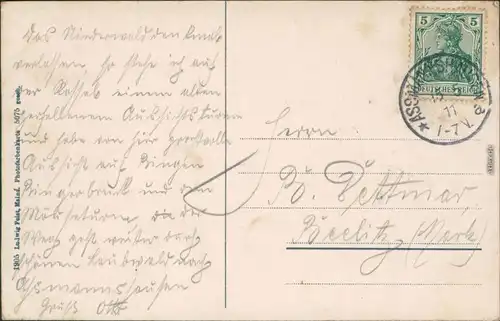 Das Niederwalddenkmal
verlassen, so stehe ich auf
der Rossel einem alten
verfallenem Aussichtsturm
und habe von hier prachtvolle
Aussicht auf Bingen
Bingerbruck und den
Mäuseturm. Der
Weg geht weiter durch
schönen Laubwald nach
Assmannshausen
Gruß Otto
1905 Ludwig Feist, Mainz. Photofarbenkarte 5075 gesch.
5 5
DEUTSCHES REICH
*ASSMANNSHAUSEN
15.5.
11
1-7V.
a
Herrn
B. Dettmar
Beelitz (Mark)